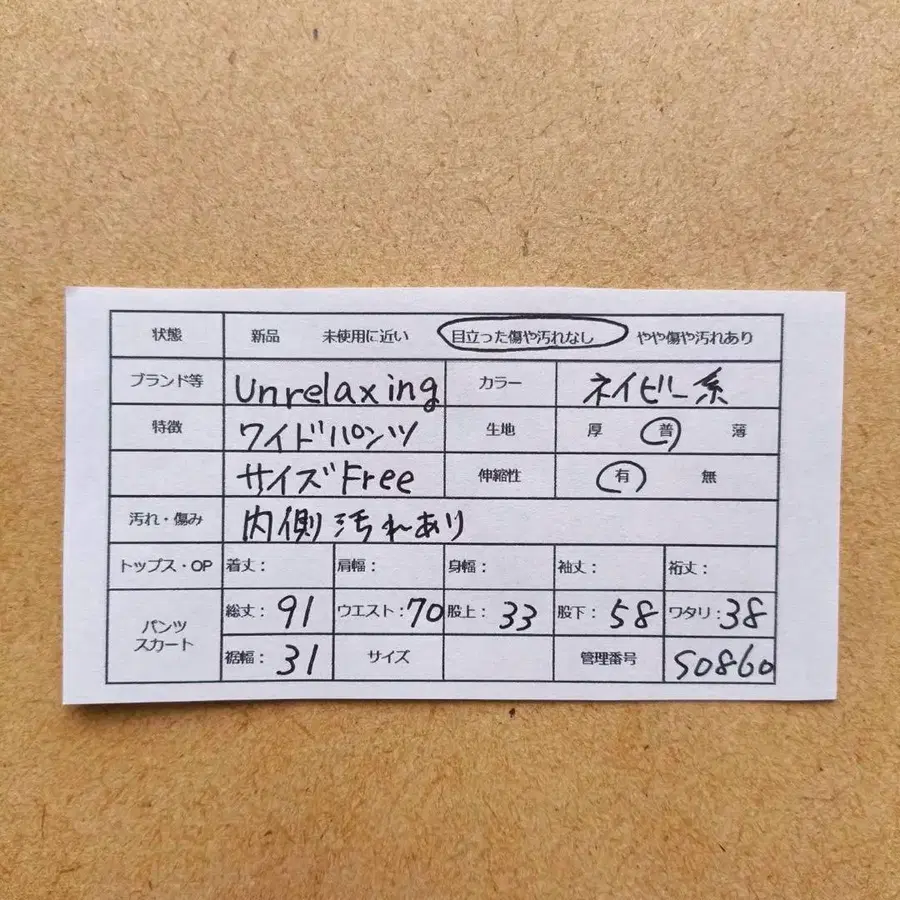 状態 新品 未使用に近い 目立った傷や汚れなし やや傷や汚れあり
ブランド等 unrelaxing カラー ネイビー系
特徴 ワイドパンツ 生地 厚 普 薄
サイズFree 伸縮性 有 無
汚れ・傷み 内側汚れあり
トップス・OP 着丈： 肩幅： 身幅： 袖丈： 裄丈：
パンツ スカート 総丈：91 ウエスト：70 股上：33 股下：58 ワタリ：38
裾幅：31 サイズ 管理番号 S0860